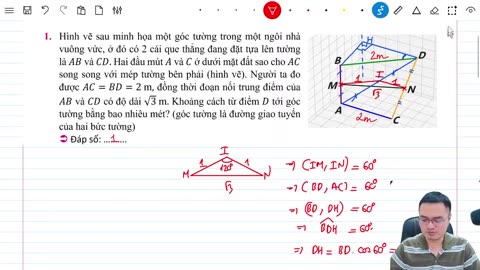 1. Hình vẽ sau minh họa một góc tường trong một ngôi nhà
vuông vức, ở đó có 2 cái que thẳng đang đặt tựa lên tường
là AB và CD. Hai đầu mút A và C ở dưới mặt đất sao cho AC
song song với mép tường bên phải (hình vẽ). Người ta đo
được AC = BD = 2 m, đồng thời đoạn nối trung điểm của
AB và CD có độ dài √3 m. Khoảng cách từ điểm D tới góc
tường bằng bao nhiêu mét? (góc tường là đường giao tuyến
của hai bức tường)
Đáp số: ...1....
H
B
2m
D
I
M
√3
N
A
2m
C
I
1
120°
1
M
√3
N
→ (IM, IN) = 60°
→ (BD, AC) = 60°
→ (BD, DH) = 60°
→ BDH = 60°
→ DH = BD. cos 60° =